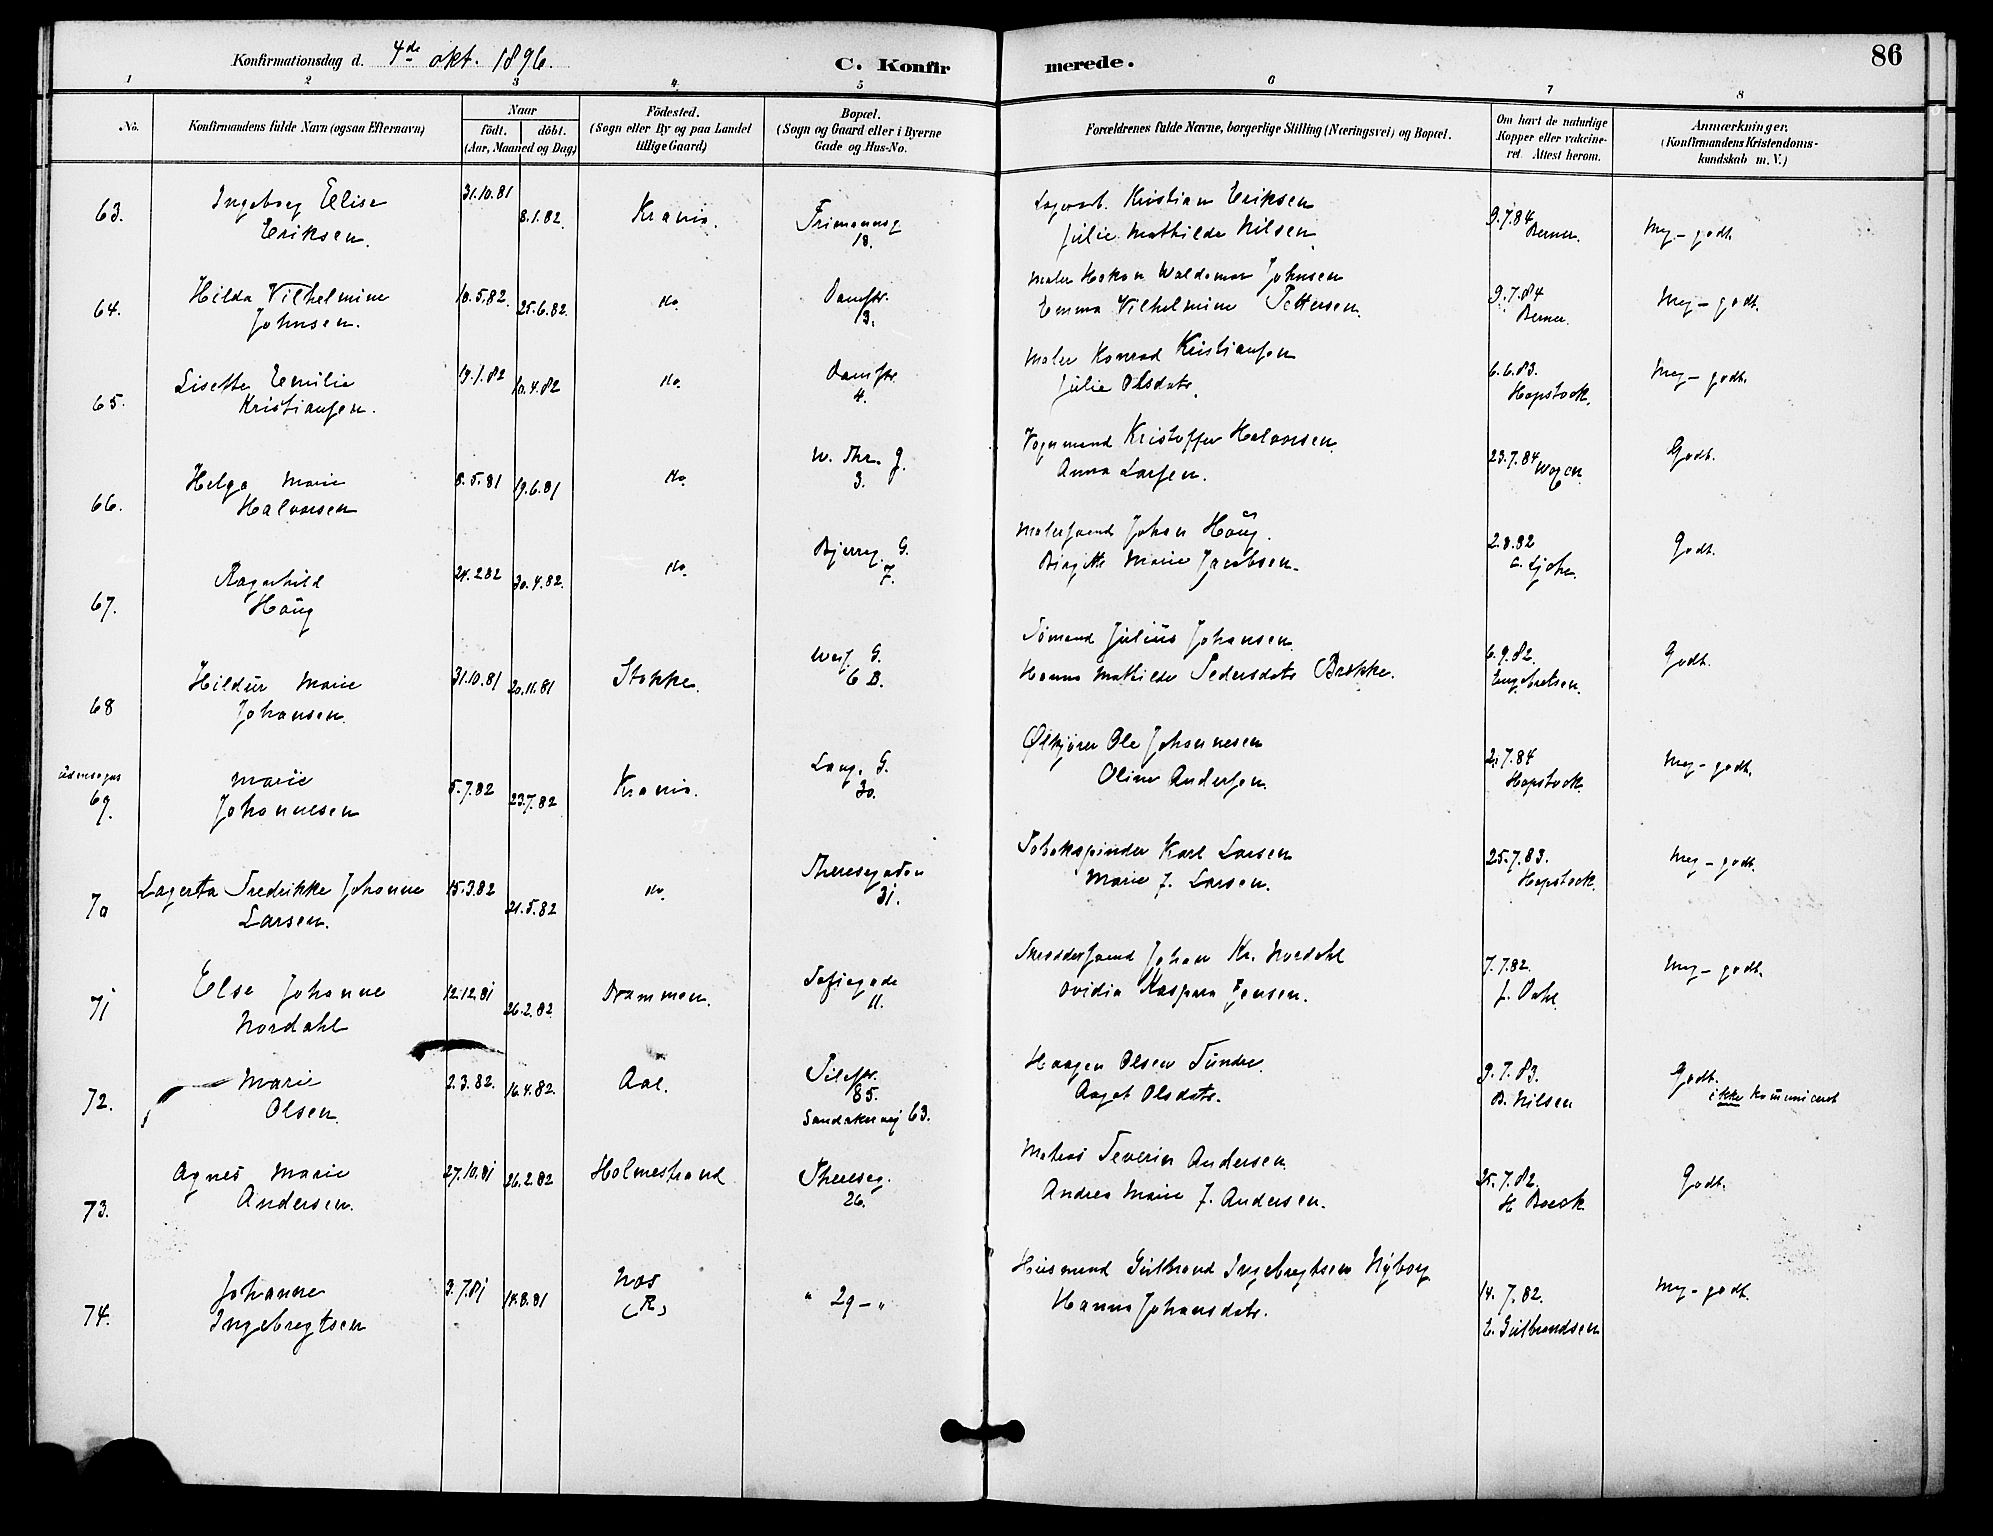 Konfirmationsdag d. 4de okt. 1896.
C. Konfir
merede.
86
1 2 3 4 5 6 7 8
No.
Konfirmandens fulde Navn (ogsaa Efternavn)
Naar
födt. döbt.
(Aar, Maaned og Dag)
Födested.
(Sogn eller By og paa Landet
tillige Gaard)
Bopæl.
(Sogn og Gaard eller i Byerne
Gade og Hus-No.
Forældrenes fulde Navne, borgerlige Stilling (Næringsvei) og Bopæl.
Om havt de naturlige
Kopper eller vakcine-
ret. Attest herom.
Anmærkninger.
(Konfirmandens Kristendoms-
kundskab m. V.)
63. Ingeborg Elise
Eriksen.
31.10.81 8.1.82. Krania.
18.
Kristian Eriksen
Julie Mathilde Nilsen
9.7.84
Berner.
Meg- godt.
64. Hilda Vilhelmine
Johnsen.
10.5.82. 25.6.82. do.
Damstr.
13.
Maler Hakon Waldemar Johnsen
Emma Vilhelmine Pettersen.
9.7.84
Berner.
Meg- godt.
65. Lisette Emilie
Kristiansen.
19.1.82 10.4.82 do.
Damstr.
4.
Maler Konrad Kristiansen
Julie Olsdatr.
6.6.83.
Hopstock.
Meg- godt.
66. Helga Marie
Halvorsen
8.5.81 19.6.81 do.
W. Thr. G.
3.
Vognmand Kristoffer Halvorsen.
Anna Larsen.
23.7.84
Godt.
67. Ragnhild
Haüg
24.2.82 30.4.82. do.
Bjerreg. G.
7.
Malersvend Johan Haüg.
Birgitte Marie Jacobsen.
2.8.82
Godt.
68 Hildür Marie
Johansen.
31.10.81 20.11.81 Stokke.
G.
6 B.
Sømand Julius Johansen.
Hanna Mathilde Pedersdatr Brekke.
6.9.82.
Engebretsen.
Godt.
udensogns
69. Marie
Johannesen
5.7.82 23.7.82 Krania.
Lang. G.
30.
Ølkjører Ole Johannesen
Oline Andersen.
21.7.84
Hopstock.
Meg- godt.
70 Lagerta Fredrikke Johanne
Larsen.
15.3.82 21.5.82 do.
Theresegaden
31.
Tobakspinder Karl Larsen
Marie J. Larsen.
25.7.83.
Hopstock.
Meg- godt.
71 Else Johanne
Nordahl
12.12.81 26.2.82 Drammen.
Sofiegade
11.
Skreddersvend Johan Kr. Nordahl
Ovidia Kaspara Jensen.
7.7.82.
J. Dahl
Meg- godt.
72. Marie
Olsen.
2.3.82. 16.4.82. Aal.
Pilestr.
85.
Sandakervej 63.
Haagen Olsen Tündre.
Aagot Olsdatr.
9.7.83.
B. Nilsen
Godt.
ikke kommuniceret
73. Agnes Marie
Andersen.
27.10.81 26.2.82 Holmestrand
Thereseg.
26.
Matros Severin Andersen.
Andrea Marie J. Andersen.
25.7.82.
H Boeck
Godt.
74. Johanne
Ingebregtsen
3.7.81 14.8.81 Næs
(R)
" 29 - "
Hüsmand Gülbrand Ingebregtsen Nÿborg
Hanna Johansdatr.
14. 7.82.
E. Gülbrandsen
Meg- godt.